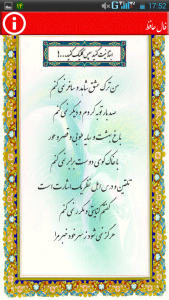 ۱۴ 17:52
فال حافظ
ابتدا نیت کنید سپس کلیک کنید...!
من ترک عشق شاهد و ساغر نمی کنم
صد بار توبه کردم و دیگر نمی کنم
باغ بهشت و سایه طوبی و قصر و حور
با خاک کوی دوست برابر نمی کنم
تلقین و درس اهل نظر یک اشارت است
گفتم کنایتی و مکرر نمی کنم
هرگز نمی شود ز سر خود خبر مرا